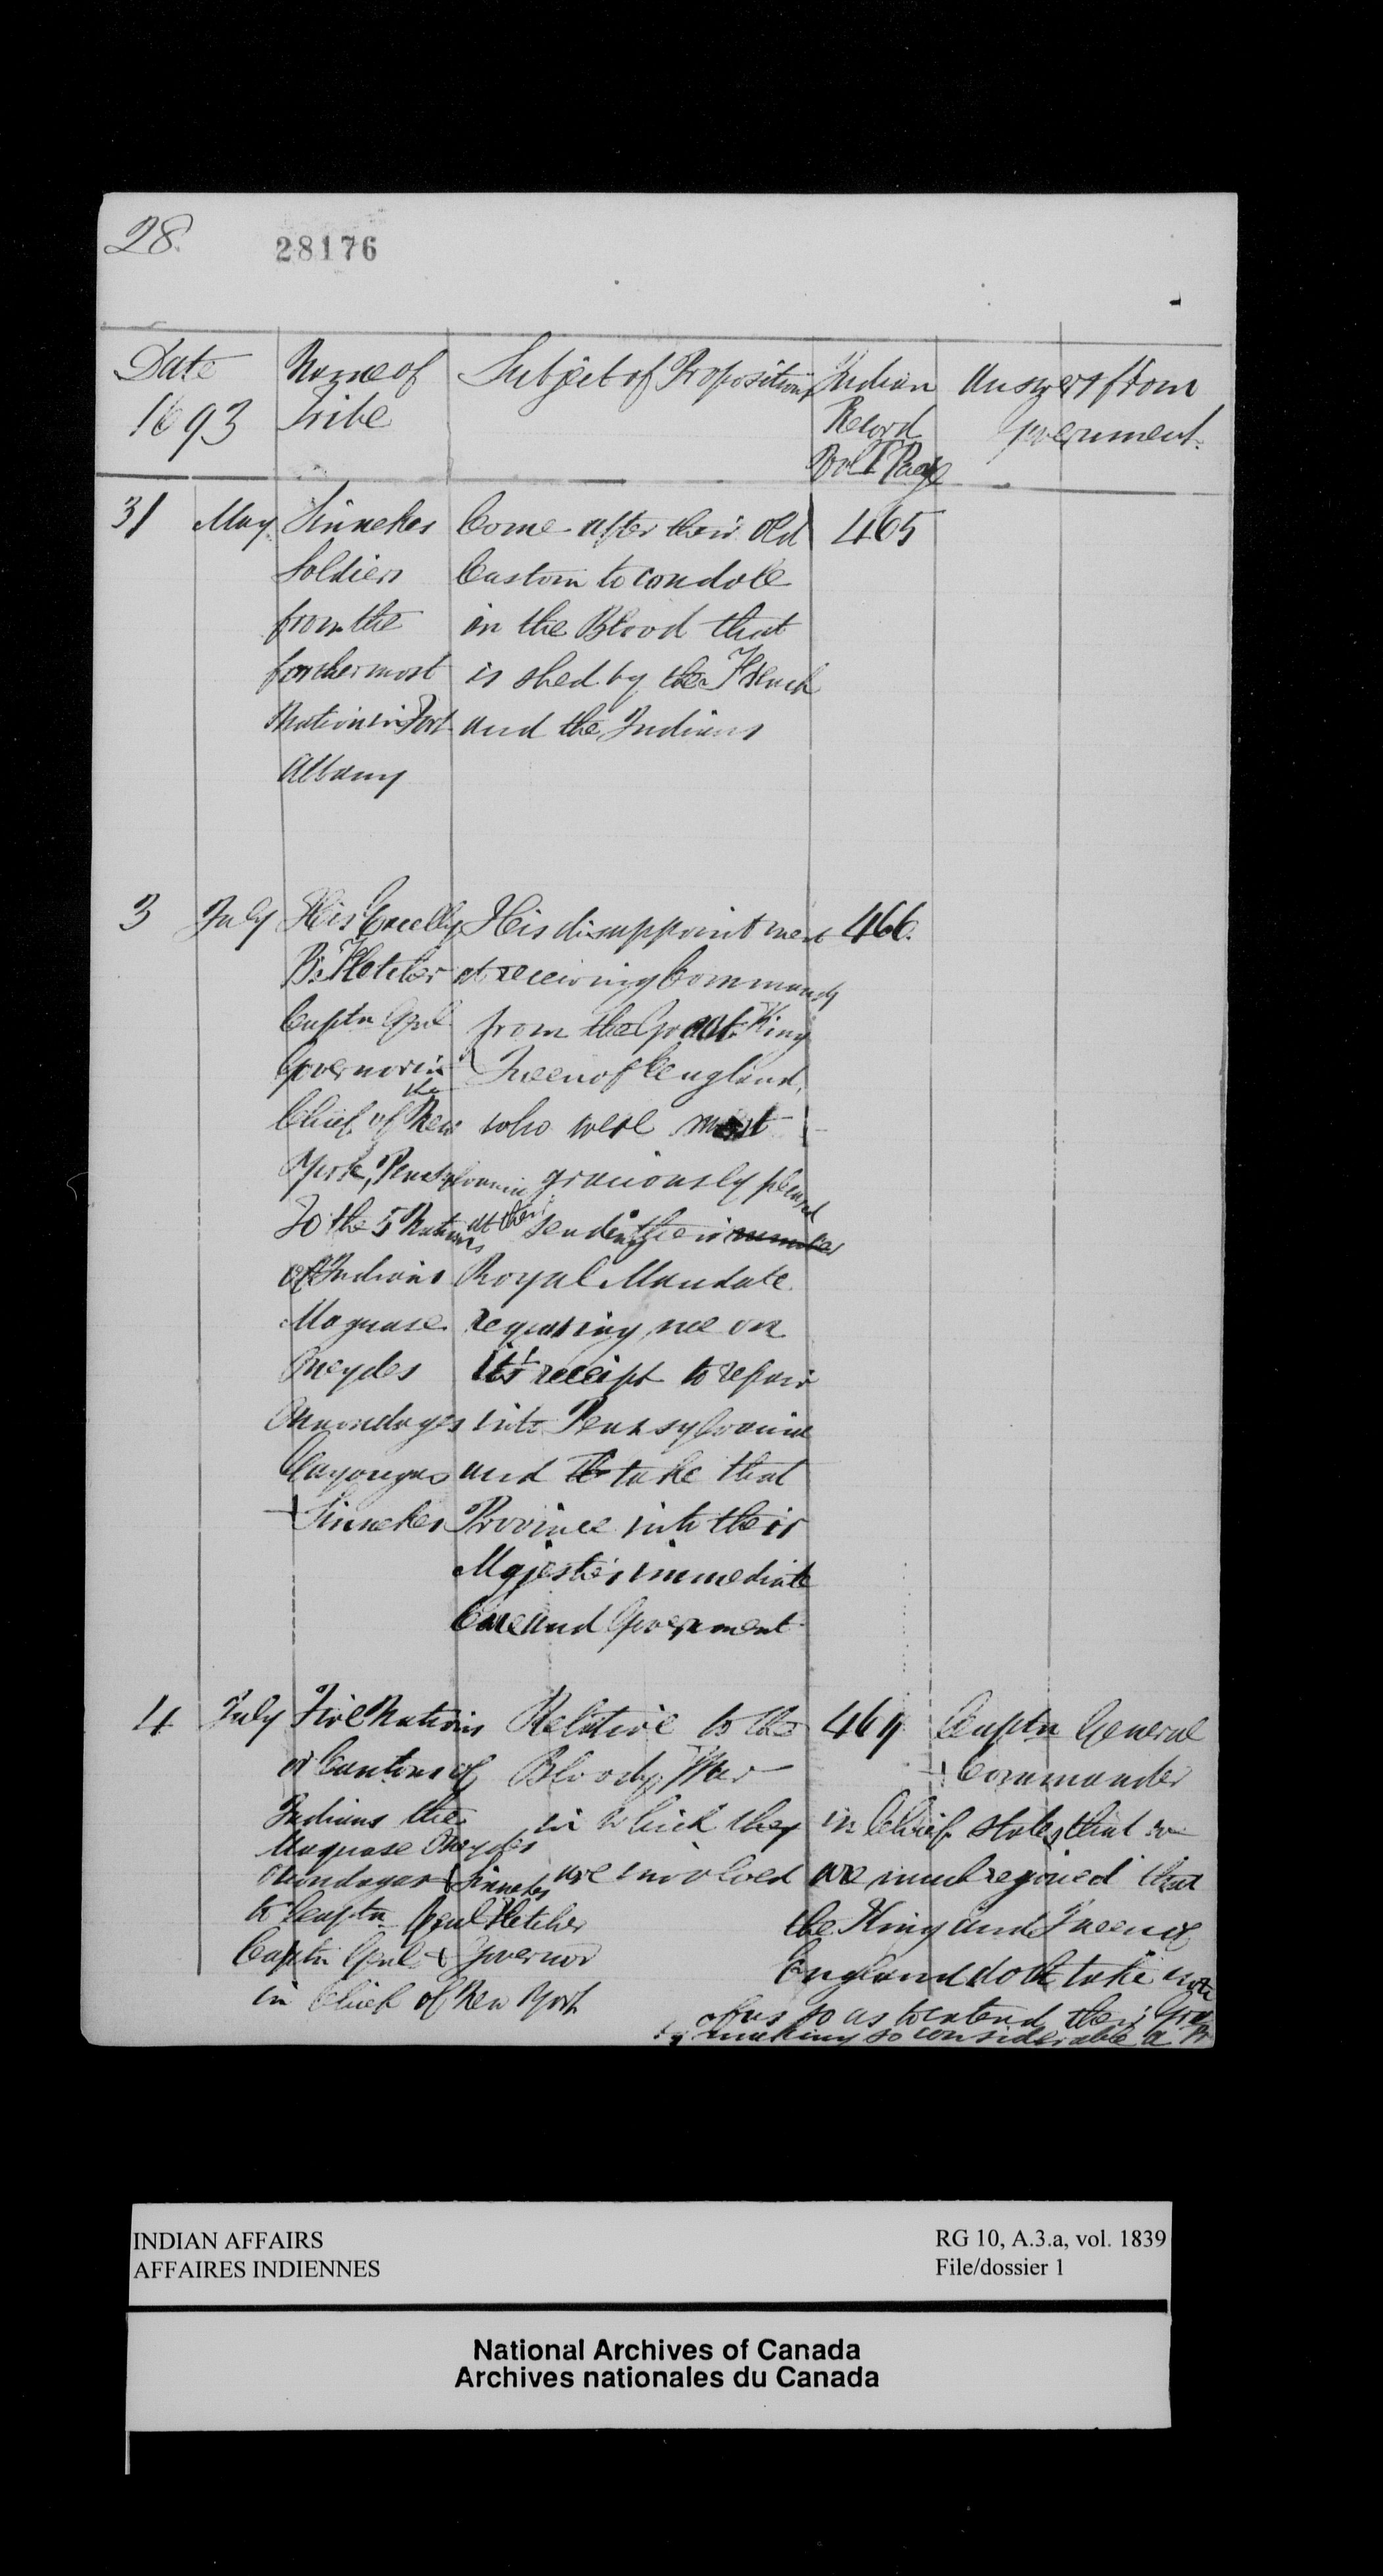 28.
28176
Date Name of Subject of Propositions Indian Answers from
1693 Tribe Record Government.
Vol 1 Page
31 May Sinnekes Come after their old 465
Soldiers Custom to condole
from the in the Blood that
forthermost is shed by the French
Nation in Fort and the Indians
Albany
3 July His Excelly His disappointment 466.
B. Fletcher at receiving Commands
Captn Genl from the Great King
Governor in & Queen of England,
the
Chief of New who were most
York, Pensylvania graciously pleased
To the 5 Nations at their sending their
of Indians Royal Mandate
Maquase requiring me on
Oneydes its receipt to repair
Onnondages into Pensylvania
Cayouges and to take that
+ Sinnekes Province into their
Majestie's immediate
Care and Government
4 July Five Nations Relative to the 469 Captn General
or Cantons of Bloody War + Commander
Indians the in which they in Chief states that we
Maquase Oneydes
Onondages & Sinnekes are involved are much rejoiced that
to Captn Genl Fletcher the King and Queen of
Captn Genl & Governor England doth take
in Chief of New York of us so as to extend their
by making so considerable a
INDIAN AFFAIRS RG 10, A.3.a, vol. 1839
AFFAIRES INDIENNES File/dossier 1
National Archives of Canada
Archives nationales du Canada